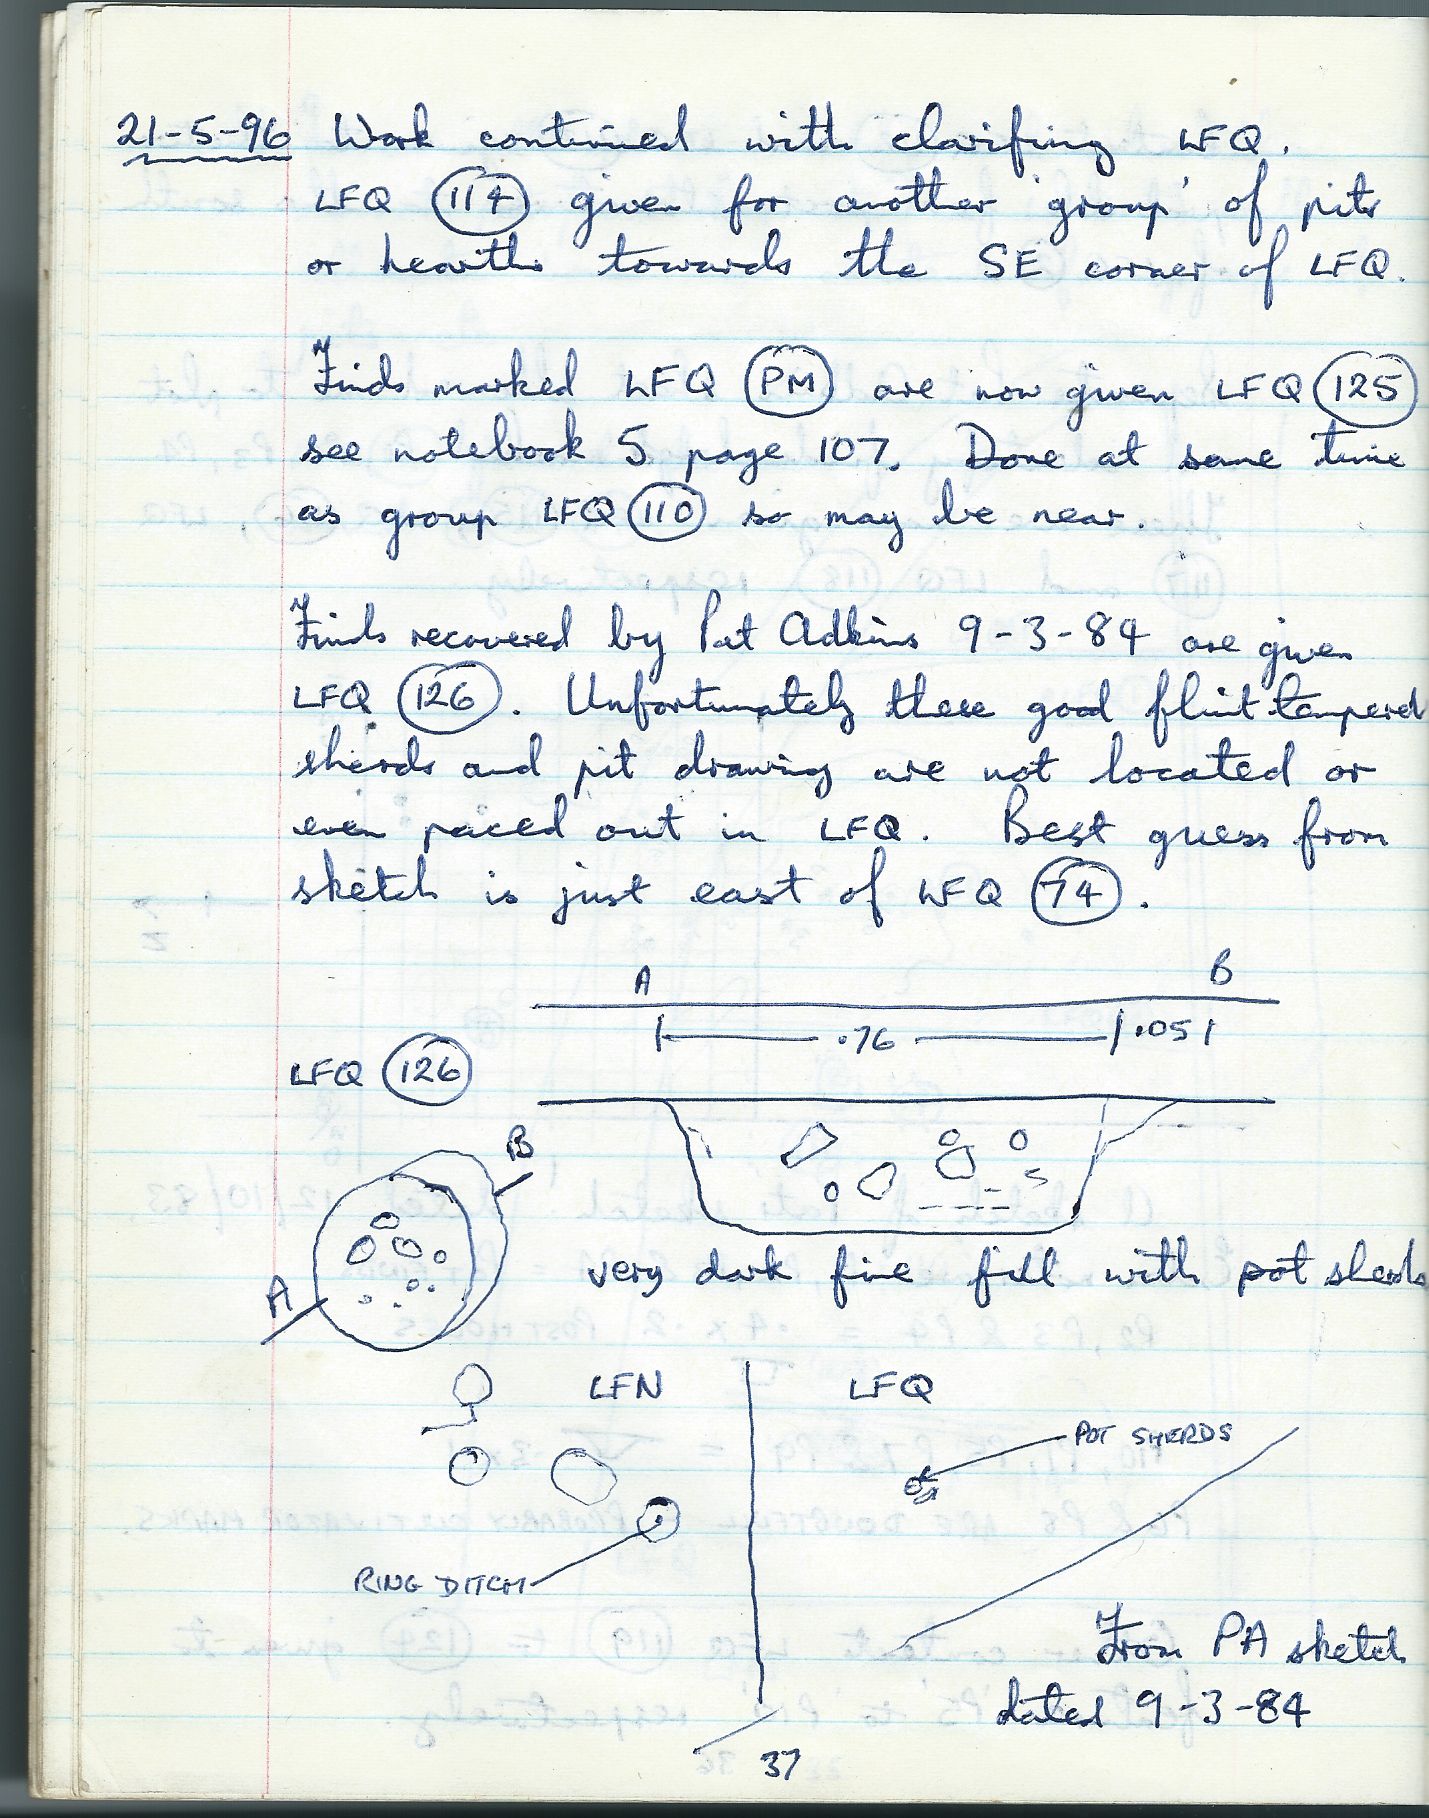 21-5-96 Work continued with clarifing LFQ.
LFQ 114 given for another 'group' of pits
or hearths towards the SE corner of LFQ.
Finds marked LFQ PM are now given LFQ 125
see notebook 5 page 107. Done at same time
as group LFQ 110 so may be near.
Finds recovered by Pat Adkins 9-3-84 are given
LFQ 126. Unfortunately these good flint tempered
sherds and pit drawing are not located or
even paced out in LFQ. Best guess from
sketch is just east of LFQ 74.
A B
.76 .05
LFQ 126
B
A
very dark fine fill with pot sherds
LFN LFQ
POT SHERDS
RING DITCH
From PA sketch
dated 9-3-84
37